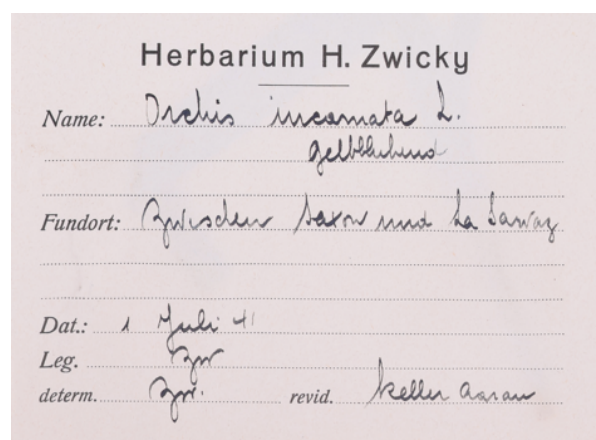 Herbarium H. Zwicky
Name: Orchis incarnata L.
gelbblühend
Fundort: Zwischen Saxon und La Sarvaz
Dat.: 1 Juli 41
Leg. Zw
determ. Zw. revid. Keller Aarau